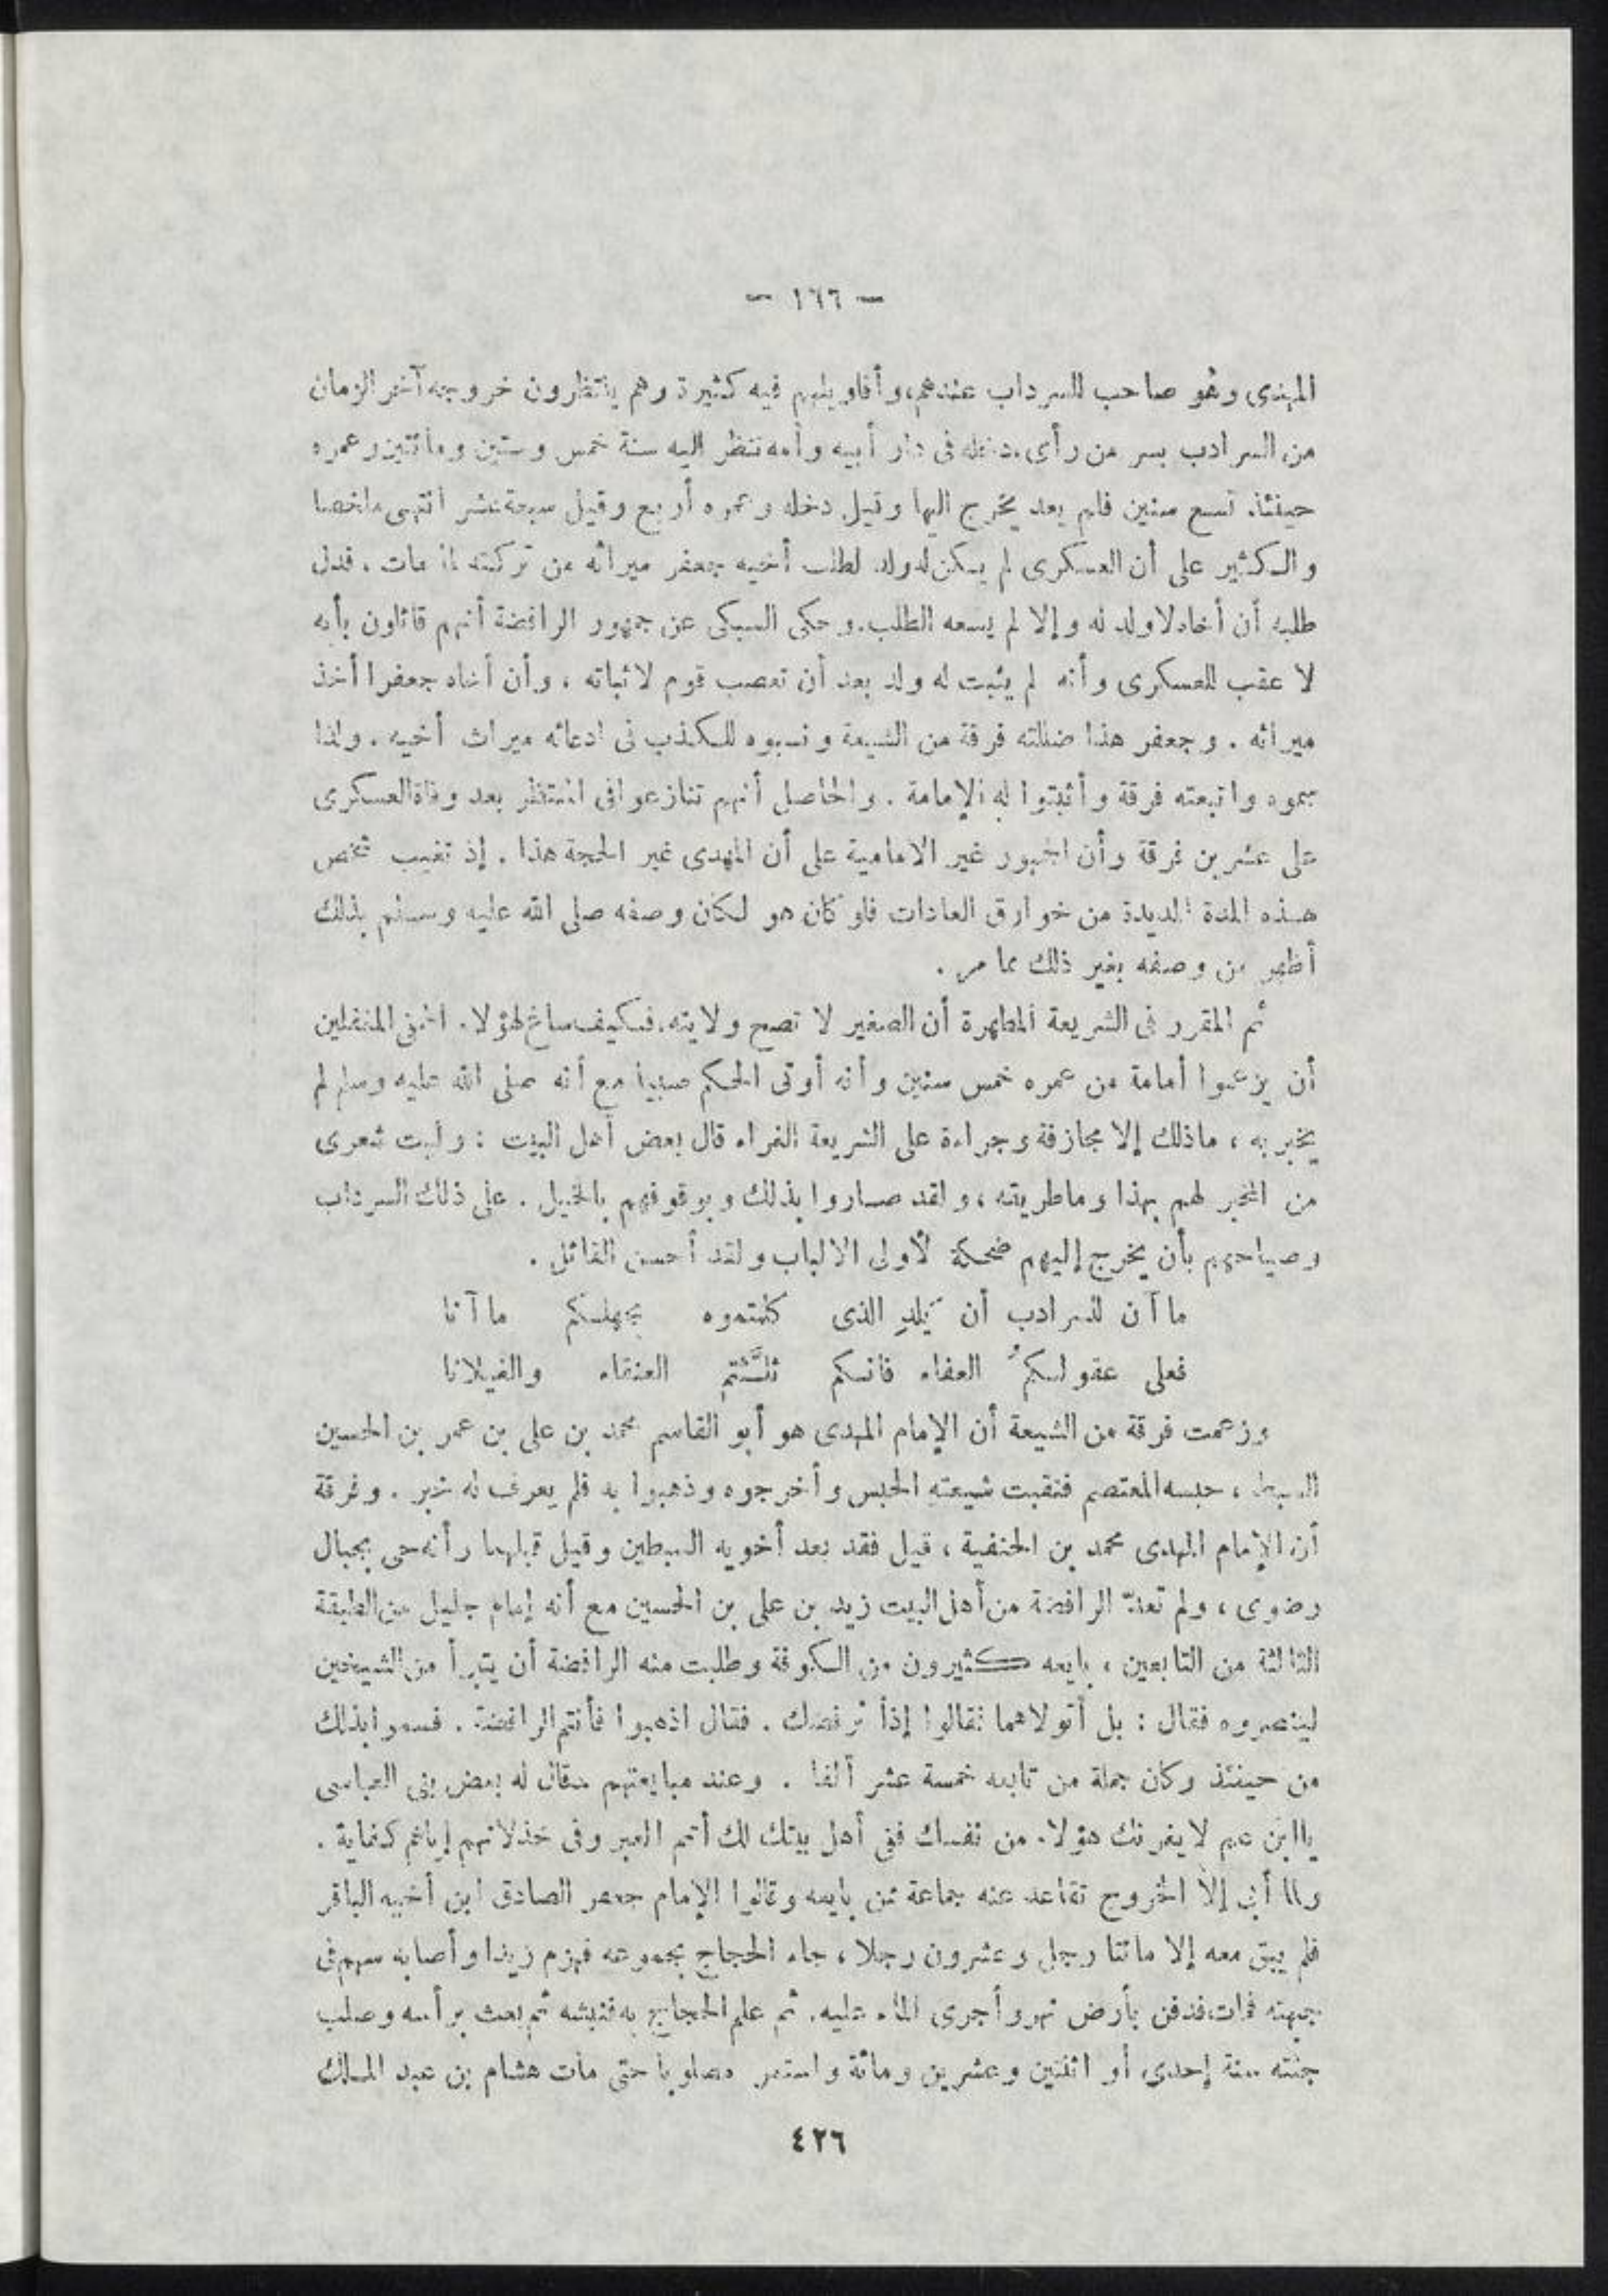 — ١٦٦ —
المهدى وهو صاحب السرداب عندهم، وأقاويلهم فيه كثيرة وهم ينتظرون خروجه آخر الزمان
من السرادب بسر من رأى. دخله فى دار أبيه وأمه تنظر اليه سنة خمس وستين ومائتين وعمره
حينئذ تسع سنين فلم يعد يخرج اليها وقيل دخله وعمره أربع وقيل سبعة عشر انتهى ملخصا
والكثير على أن العسكرى لم يكن له ولد لطلب أخيه جعفر ميراثه من تركته لما مات . فدل
طلبه أن أخاه لا ولد له وإلا لم يسعه الطلب. وحكى السبكى عن جمهور الرافضة أنهم قائلون بأنه
لا عقب للعسكرى وأنه لم يثبت له ولد بعد أن تعصب قوم لاثباته ، وأن أخاه جعفرا أخذ
ميراثه . وجعفر هذا ضللته فرقة من الشيعة ونسبوه للكذب فى ادعائه ميراث أخيه . ولذا
سموه واتبعته فرقة وأثبتوا له الإمامة . والحاصل أنهم تنازعوا فى المنتظر بعد وفاة العسكرى
على عشرين فرقة وأن الجمهور غير الامامية على أن المهدى غير الحجة هذا . إذ تغيب شخص
هذه المدة المديدة من خوارق العادات فلو كان هو لكان وصفه صلى الله عليه وسلم بذلك
أظهر من وصفه بغير ذلك مما مر .
ثم المقرر فى الشريعة المطهرة أن الصغير لا تصح ولايته، فكيف ساغ لهؤلاء الحمقى المغفلين
أن يزعموا أمامة من عمره خمس سنين وأنه أوتى الحكم صبيا مع أنه صلى الله عليه وسلم لم
يخبر به ، ماذلك إلا مجازفة وجراءة على الشريعة الغراء قال بعض أهل البيت : وليت شعرى
من المخبر لهم بهذا وماطريقته ، ولقد صاروا بذلك وبوقوفهم بالخيل . على ذلك السرداب
وصياحهم بأن يخرج إليهم ضحكة لأولى الالباب ولقد أحسن القائل .
ما آن للسرادب أن يلد الذى كلمتموه بجهلكم ما آنا
فعلى عقولكمُ العفاء فانكم ثلَّثتم العنقاء والغيلانا
وزعمت فرقة من الشيعة أن الإمام المهدى هو أبو القاسم محمد بن على بن عمر بن الحسين
السبط ، حبسه المعتصم فنقبت شيعته الحبس وأخرجوه وذهبوا به فلم يعرف له خبر . وفرقة
أن الإمام المهدى محمد بن الحنفية ، قيل فقد بعد أخويه السبطين وقيل قبلهما وأنه حى بجبال
رضوى ، ولم تعدّ الرافضة من أهل البيت زيد بن على بن الحسين مع أنه إمام جليل من الطبقة
الثالثة من التابعين ، بايعه كثيرون من الكوفة وطلبت منه الرافضة أن يتبرأ من الشيخين
لينصروه فقال : بل أتولاهما فقالوا إذاً نرفضك . فقال اذهبوا فأنتم الرافضة . فسموا بذلك
من حينئذ وكان جملة من تابعه خمسة عشر ألفا . وعند مبايعتهم قال له بعض بنى العباسى
ياابن عم لايغرنك هؤلاء من نفسك ففى أهل بيتك لك أتم العبر وفى خذلانهم إياهم كفاية .
ولما أبى إلا الخروج تقاعد عنه جماعة ممن بايعه وقالوا الإمام جعفر الصادق ابن أخيه الباقر
فلم يبق معه إلا مائتا رجل وعشرون رجلا ، جاء الحجاج بجموعه فهزم زيدا وأصابه سهم فى
جبهته فمات، فدفن بأرض نهر وأجرى الماء عليه. ثم علم الحجاج به فنبشه ثم بعث برأسه وصلب
جثته سنة إحدى أو اثنتين وعشرين ومائة واستمر مصلوبا حتى مات هشام بن عبد الملك
٤٢٦